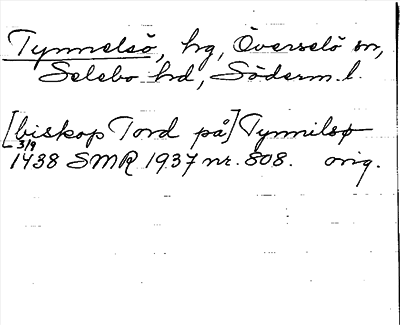 Tynnelsö, hg, Överselö sn,
Selebo hd, Söderm. l.
[biskop Tord på] Tynnilsø
3/9
1438 SMR 1937 nr. 808. orig.